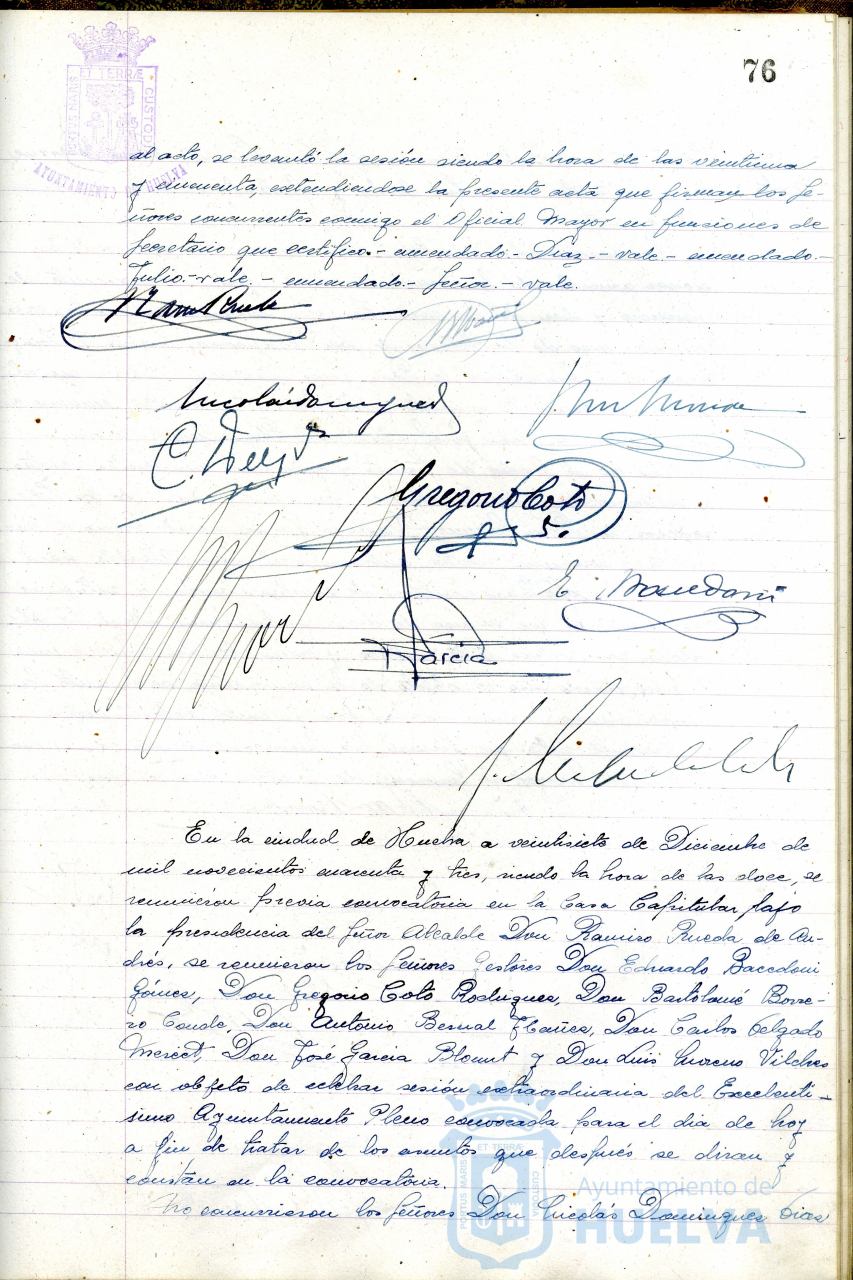 76
ET TERRÆ
PORTUS MARIS
CUSTODIA
AYUNTAMIENTO DE HUELVA
al acto, se levantó la sesión siendo la hora de las veintiuna
y cincuenta, extendiendose la presente acta que firman los Se-
ñores concurrentes conmigo el Oficial Mayor en funciones de
Secretario que certifico.- enmendado.- Diaz.- vale.- enmendado.-
Julio.- vale.- enmendado.- Señor.- vale.
Nicolás Dominguez
Gregorio Coto
E. Bacedoni
Garcia
En la ciudad de Huelva a veintisiete de Diciembre de
mil novecientos cuarenta y tres, siendo la hora de las doce, se
reunieron previa convocatoria en la Casa Capitular, bajo
la presidencia del Señor Alcalde Don Ramiro Rueda de An-
drés, se reunieron los Señores Gestores Don Eduardo Bacedoni
Gómez, Don Gregorio Coto Rodriguez, Don Bartolomé Borre-
ro Conde, Don Antonio Bernal Ibañez, Don Carlos Delgado
Don José Garcia Blount y Don Luis Moreno Vilches
con objeto de celebrar sesión extraordinaria del Excelenti-
simo Ayuntamiento Pleno convocada para el dia de hoy
a fin de tratar de los asuntos que después se diran y
constan en la convocatoria.
No concurrieron los Señores Don Nicolás Dominguez Diaz
ET TERRÆ
PORTUS MARIS
CUSTODIA
Ayuntamiento de
HUELVA